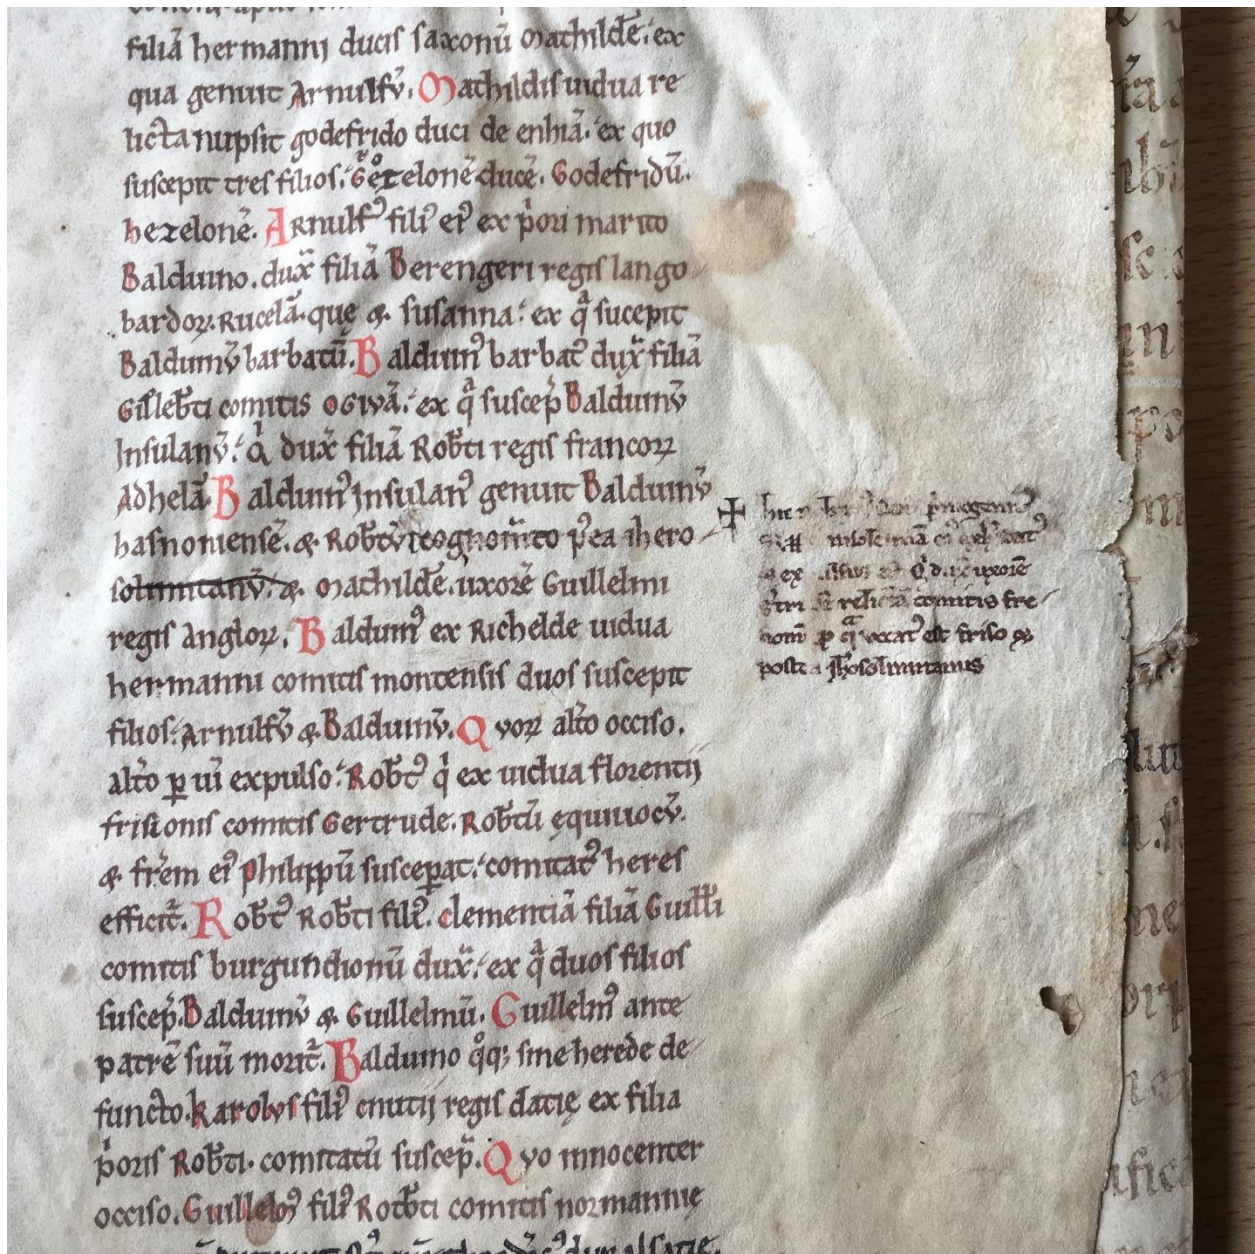 filiā hermanni ducis saxonū Mathildē. ex
qua genuit Arnulfū. Mathildis uidua re
licta nupsit godefrido duci de enhiā. ex quo
suscepit tres filios. Gozelonē ducē. Godefridū.
hezelonē. Arnulfꝰ filiꝰ eiꝰ ex pͥori marito
Balduino. duxͭ filiā Berengeri regis lango
bardoꝝ. Rucelā. que & susanna. ex qͣ sucepit
Balduinū barbatū. Balduinꝰ barbatꝰ duxͭ filiā
Gislebti comitis OGIVĀ. ex qͣ suscep̄ Balduinū
Insulanū. qͥ duxͭ filiā Robti regis francoꝝ
Adhelā. Balduinꝰ Insulanꝰ genuit Balduinū
hasnoniensē. & Robtū cognom̄to p̄ea ihero
solimitanū. & Mathildē. uxorē Guillelmi
regis angloꝝ. Balduinꝰ ex Richelde uidua
hermanni comitis montensis duos suscepit
filios. Arnulfū & Balduinū. Quoꝝ altͦo occiso.
altͦo ꝑ uī expulso. Robtꝰ qͥ ex uidua florentij
frisionis comitis Gertrude. Robtū ęquiuocū.
& fr̄em eiꝰ Philippū suscepat. comitatꝰ heres
efficit̄. Robtꝰ Robti filiꝰ. clementiā filiā Guilli
comitis burgundionū duxͭ. ex qͣ duos filios
suscep̄. Balduinū & Guillelmū. Guillelmꝰ ante
patrē suū morit̄. Balduino qͦqꝫ sine herede de
functo. karolus filiꝰ cnutij regis datię ex filia
pͥoris Robti. comitatū suscep̄. Quo innocenter
occiso. Guillelmꝰ filiꝰ Rotbti comitis normannię
pͥmogenitꝰ
uxorē
relictā comitis fre
ꝑ qͣ uocatꝰ est friso &
postea Ih̄osolimitanus